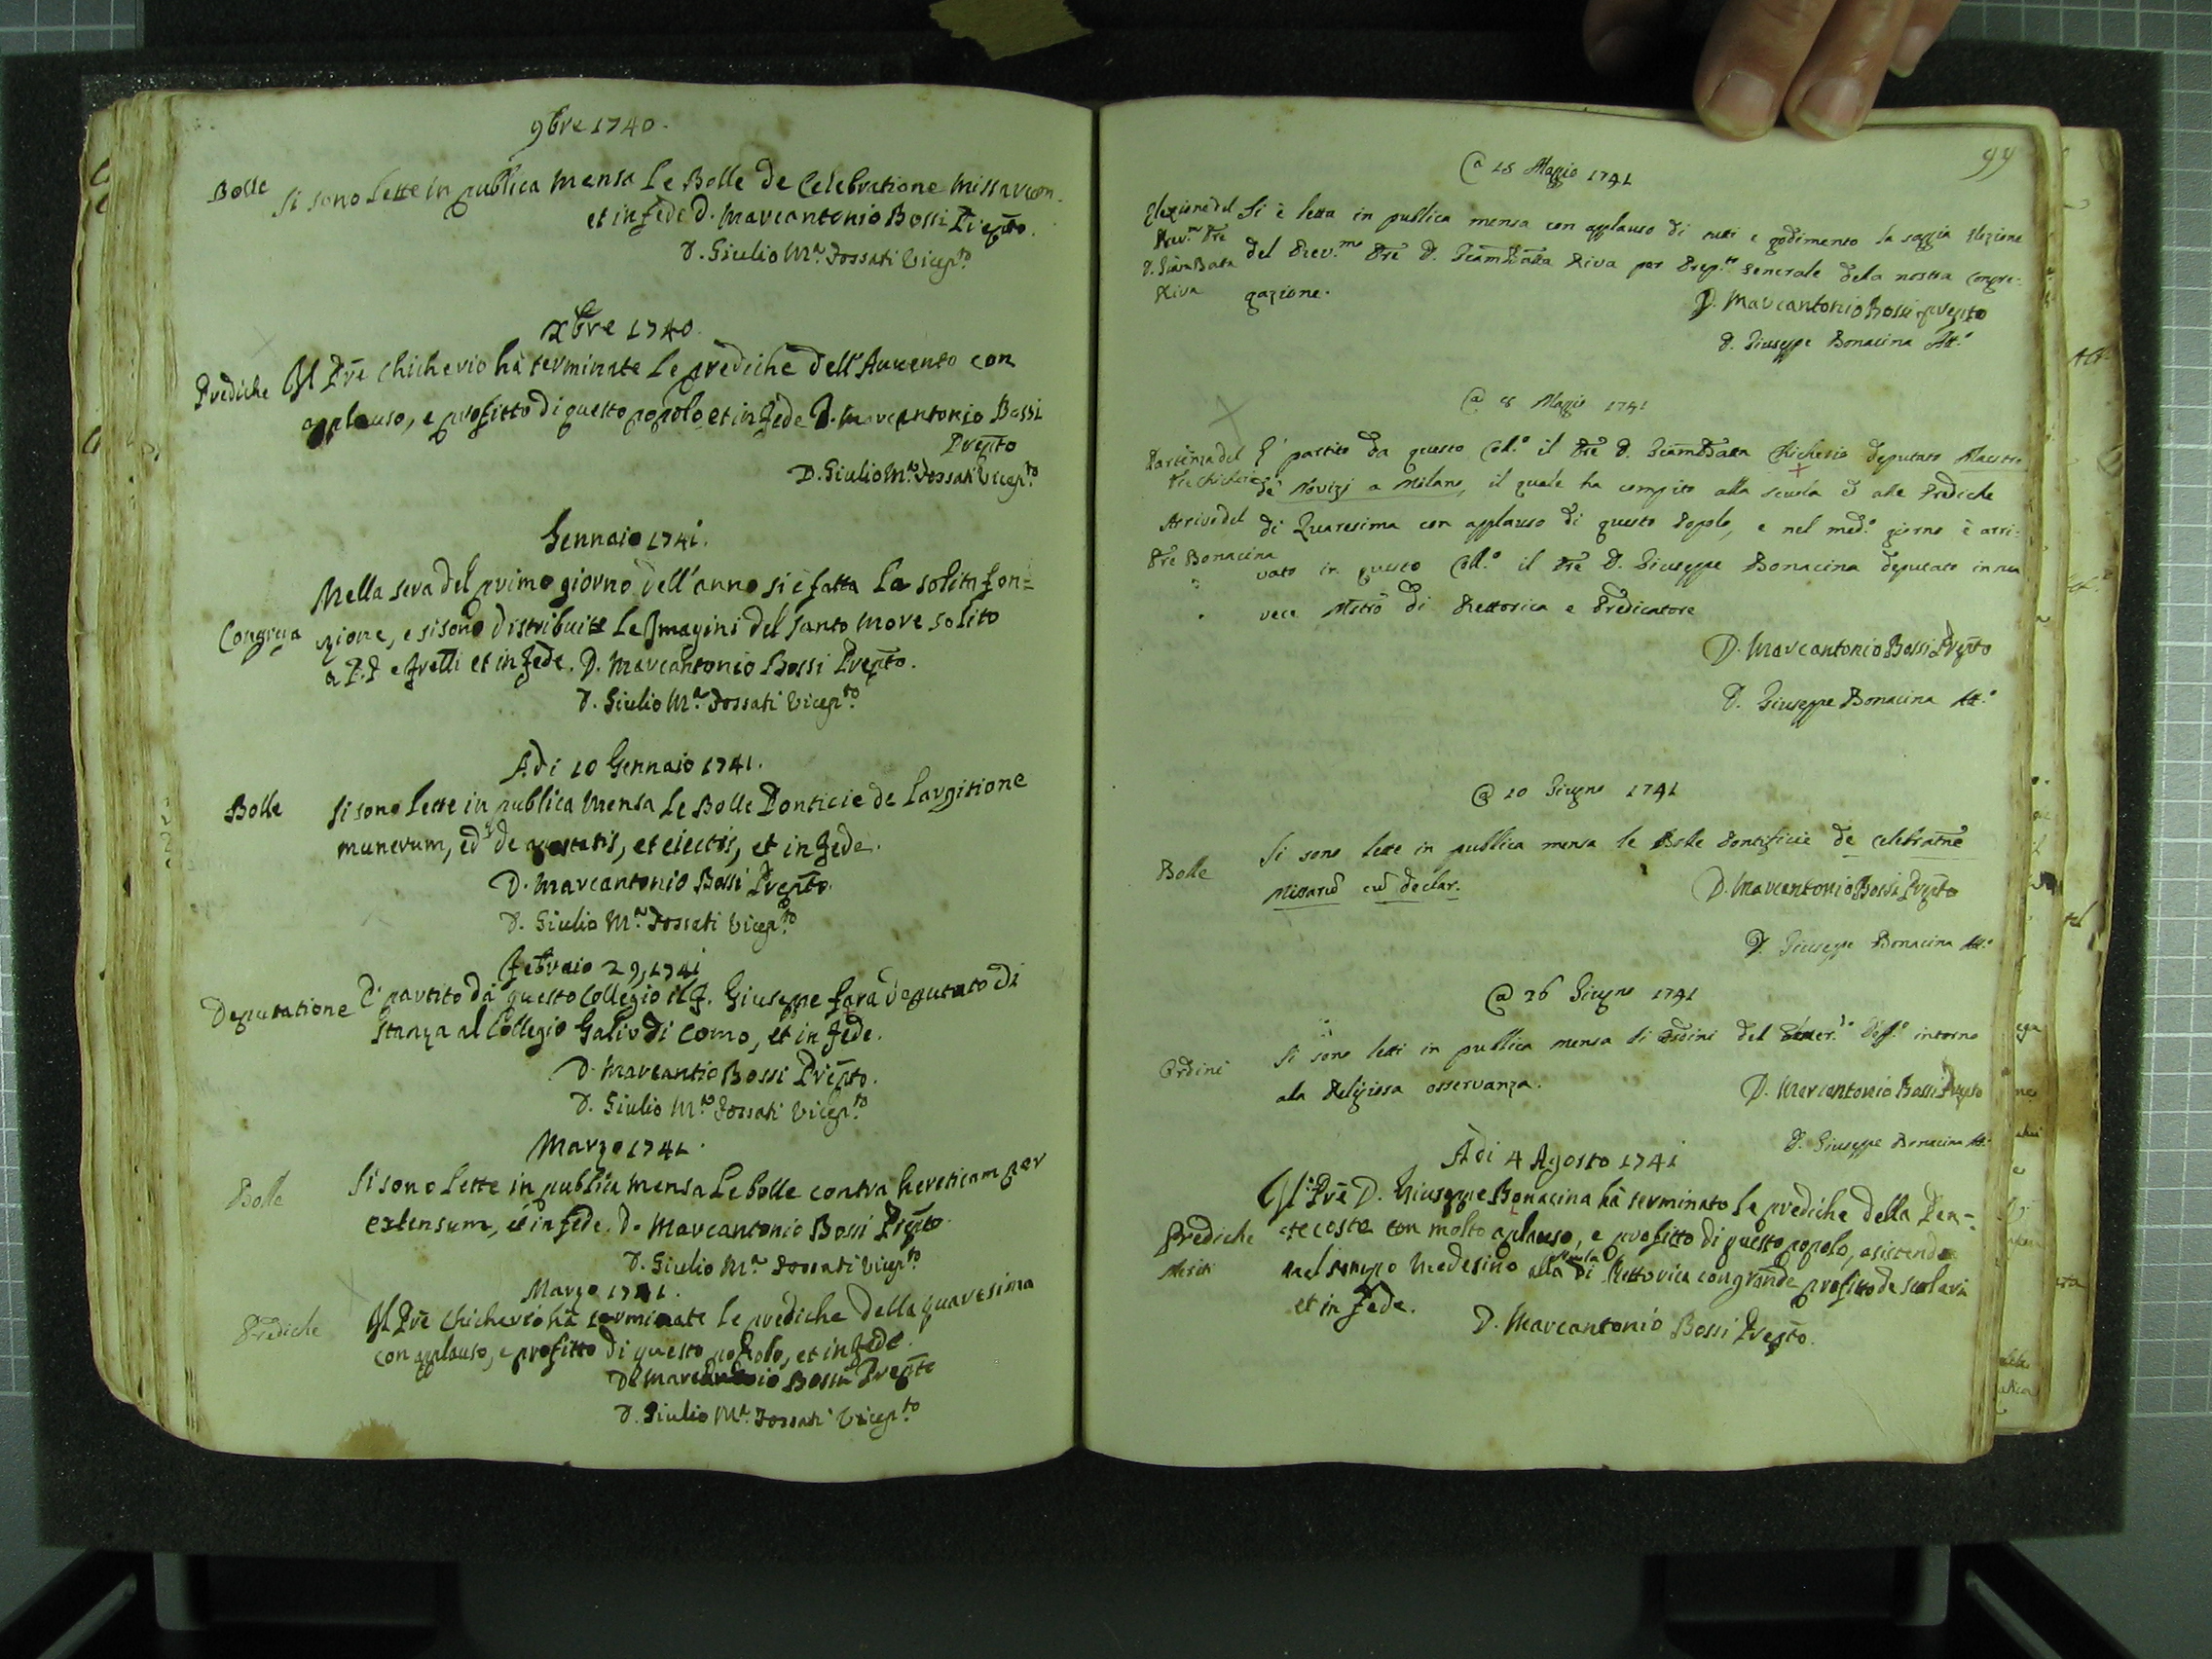 9bre 1740.
Bolle Si sono lette in publica mensa le Bolle de Celebratione missarum.
et in fede D. Marcantonio Bossi Prepto.
D. Giulio Mª Fossati Vicepto
Xbre 1740.
Prediche Il Pre Chicherio hà terminate le prediche dell'Auuento con
applauso, e profitto di questo popolo et in fede D. Marcantonio Bossi
Prepto
D. Giulio Mª Fossati Vicepto
Gennaio 1741.
Nella sera del primo giorno dell'anno si è fatta la solita fon=
Congrega zione, e si sono distribuite le Imagini del Santo more solito
a P.P e frelli et in fede. D. Marcantonio Bossi Prepto.
D. Giulio Mª Fossati Vicepto
Adi 10 Gennaio 1741.
Bolle Si sono lette in publica mensa le Bolle Ponticie de largitione
munerum, ed de apostatis, et eiectis, et in fede.
D. Marcantonio Bossi Prepto.
D. Giulio Mª Fossati Vicepto
Febraio 29, 1741
Deputatione È partito da questo Collegio il f. Giuseppe Fara deputato di
stanza al Collegio Galio di Como, et in fede.
D. Marcantio Bossi Prepto.
D. Giulio Mª Fossati Vicepto
Marzo 1741.
Bolle Si sono lette in publica mensa le bolle contra hereticam per
extensum, et in fede. D. Marcantonio Bossi Prepto
D. Giulio Mª Fossati Vicepto
Marzo 1741.
Prediche Il Pre Chicherio hà terminate le prediche della quaresima
con applauso, e profitto di questo popolo, et in fede.
D. Marcantonio Bossi Prepto
D. Giulio Mª Fossati Vicepto
99
@ 18 Maggio 1741
Elezione del Si è letta in publica mensa con applauso di tutti e godimento la saggia elezione
Rev.mo Pre
D. GiamBatta del Rev.mo Pre D. GiamBatta Riva per Prep.to Generale dela nostra Congre-
Riva gazione.
D. Marcantonio Bossi prepto
D. Giuseppe Bonacina Att.º
@ 8 Maggio 1741
Partenza del E' partito da questo Coll.º il Pre D. GiamBatta Chicherio deputato Maestro
Pre Chicherio de' Novizj a Milano, il quale ha compito alla scuola ed alle Prediche
Arrivo del di Quaresima con applauso di questo Popolo, e nel med.º giorno è arri-
Pre Bonacina
vato in questo Coll.º il Pre D. Giuseppe Bonacina deputato in sua
vece Mrõ di Rettorica e Predicatore
D. Marcantonio Bossi Prepto
D. Giuseppe Bonacina Att.º
@ 10 Giugno 1741
Bolle Si sono lette in publica mensa le Bolle Pontificie de celebratne
Missarũ cũ declar.
D. Marcantonio Bossi Prepto
D. Giuseppe Bonacina Att.º
@ 26 Giugno 1741
Ordini Si sono letti in publica mensa li Ordini del Def.º intorno
ala Religiosa osservanza.
D. Marcantonio Bossi Prepto
D. Giuseppe Bonacina Att.º
Adi 4 Agosto 1741
Il Pre D. Giuseppe Bonacina hà terminato le prediche della Pen-
Prediche tecoste con molto aplauso, e profitto di questo popolo, asistendo
Meriti nel tempo medesimo alla scuola di Rettorica con grande profitto de scolari
et in fede.
D. Marcantonio Bossi Prepto.